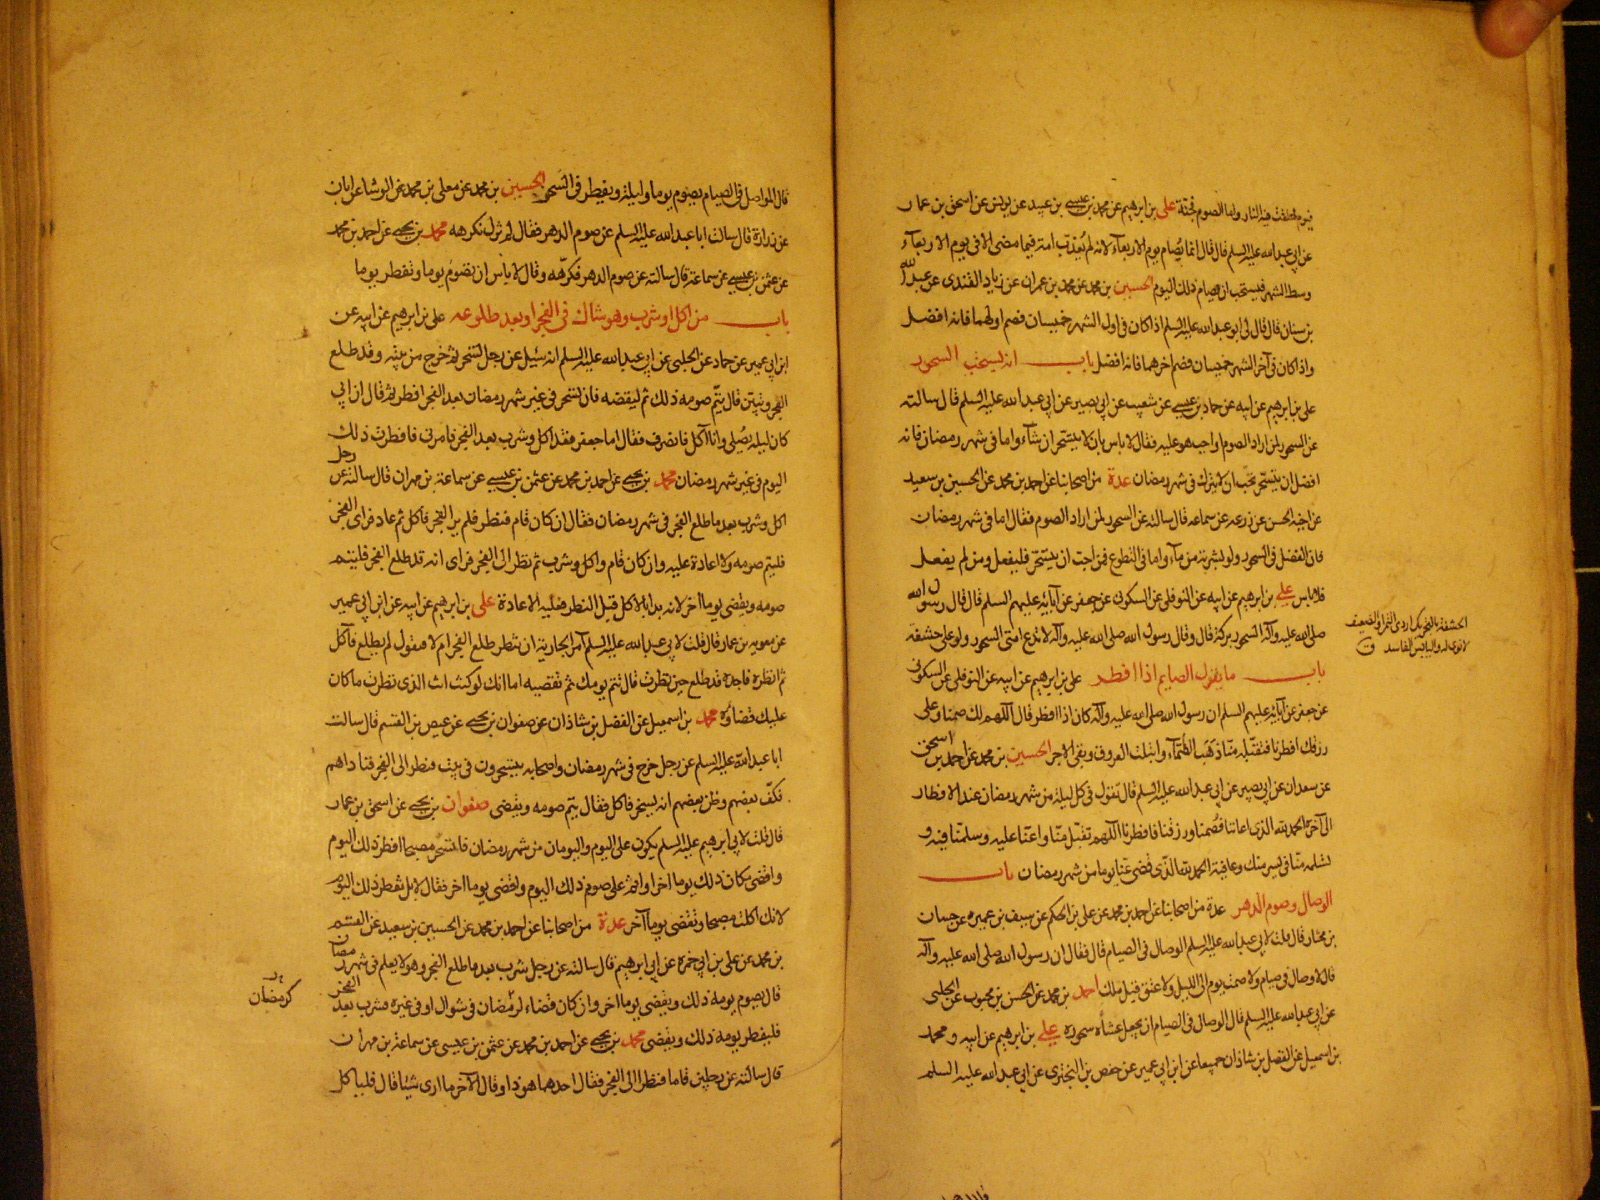 فيوم خلقت فيه النار واما الصوم فجنة علي بن ابرهيم عن محمد بن عيسى بن عبيد عن يونس عن اسحق بن عمار
عن ابي عبد الله عليه السلم قال قال انما يصام يوم الاربعاء لانه لم يعذب امة فيما مضى الا في يوم الاربعاء
وسط الشهر فيستحب ان يصام ذلك اليوم الحسين بن محمد عن محمد بن عمران عن زياد القندي عن عبد الله
بن سنان قال قال لي ابو عبد الله عليه السلم اذا كان في اول الشهر خميسان فصم اولهما فانه افضل
واذا كان في آخر الشهر خميسان فصم اخرهما فانه افضل باب انه يستحب السحور
علي بن ابرهيم عن ابيه عن حماد بن عيسى عن شعيب عن ابي بصير عن ابي عبد الله عليه السلم قال سالته
عن السحور لمن اراد الصوم واجب هو عليه فقال لا باس بان لا يتسحر ان شآء واما في شهر رمضان فانه
افضل ان يتسحر نحب ان لا يترك في شهر رمضان عدة من اصحابنا عن احمد بن محمد عن الحسين بن سعيد
عن اخيه الحسن عن زرعه عن سماعه قال سالته عن السحور لمن اراد الصوم فقال اما في شهر رمضان
فان الفضل في السحور ولو بشربة من مآء واما في التطوع فمن احب ان يتسحر فليفعل ومن لم يفعل
فلا باس علي بن ابرهيم عن ابيه عن النوفلي عن السكوني عن جعفر عن آبائه عليهم السلم قال قال رسول الله
صلى الله عليه وآله السحور بركة قال وقال رسول الله صلى الله عليه وآله لا تدع امتي السحور ولو على حشفة
الحشفة بالتحريك اردى التمر او الضعيف
لا نوى له واليابس الفاسد ق
باب ما يقول الصايم اذا افطر علي بن ابرهيم عن ابيه عن النوفلي عن السكوني
عن جعفر عن آبائه عليهم السلم ان رسول الله صلى الله عليه وآله كان اذا افطر قال اللهم لك صمنا وعلى
رزقك افطرنا فتقبله منا ذهب الظمآء وابتلت العروق وبقي الاجر الحسين بن محمد عن احمد بن اسحق
عن سعدان عن ابي بصير عن ابي عبد الله عليه السلم قال تقول في كل ليلة من شهر رمضان عند الافطار
الى آخره الحمد لله الذي اعاننا فصمنا ورزقنا فافطرنا اللهم تقبل منا واعنا عليه وسلمنا فيه و
تسلمه منا في يسر منك وعافية الحمد لله الذي قضى عنا يوما من شهر رمضان باب
الوصال وصوم الدهر عدة من اصحابنا عن احمد بن محمد عن علي بن الحكم عن سيف بن عميره عن حسان
بن مختار قال قلت لابي عبد الله عليه السلم الوصال في الصيام قال فقال ان رسول الله صلى الله عليه وآله
قال لا وصال في صيام ولا صمت يوم الى الليل ولا عتق قبل ملك احمد بن محمد عن الحسن بن محبوب عن الحلبي
عن ابي عبد الله عليه السلم قال الوصال في الصيام ان يجعل عشآه سحوره علي بن ابرهيم عن ابيه ومحمد
بن اسمعيل عن الفضل بن شاذان جميعا عن ابن ابي عمير عن حفص بن البختري عن ابي عبد الله عليه السلم
قال المواصل في الصيام يصوم يوما وليلة ويفطر في السحر الحسين بن محمد عن معلى بن محمد عن الوشا عن ابان
عن زرارة قال سالت ابا عبد الله عليه السلم عن صوم الدهر فقال لم نزل نكرهه محمد بن يحيى عن احمد بن محمد
عن عثمن بن عيسى عن سماعة قال سالته عن صوم الدهر فكرهه وقال لا باس ان يصوم يوما ويفطر يوما
باب من اكل او شرب وهو شاك في الفجر او بعد طلوعه علي بن ابرهيم عن ابيه عن
ابن ابي عمير عن حماد عن الحلبي عن ابي عبد الله عليه السلم انه سئل عن رجل تسحر ثم خرج من بيته وقد طلع
الفجر وتبين قال يتم صومه ذلك ثم ليقضه فان تسحر في غير شهر رمضان بعد الفجر افطر ثم قال ان ابي
كان ليلة يصلي وانا آكل فانصرف فقال اما جعفر فقد اكل وشرب بعد الفجر فامرني فافطرت ذلك
اليوم في غير شهر رمضان محمد بن يحيى عن احمد بن محمد عن عثمن بن عيسى عن سماعة بن مهران قال سالته عن رجل
اكل وشرب بعد ما طلع الفجر في شهر رمضان فقال ان كان قام فنظر فلم ير الفجر فاكل ثم عاد فراى الفجر
فليتم صومه ولا اعادة عليه وان كان قام واكل وشرب ثم نظر الى الفجر فراى انه قد طلع الفجر فليتم
صومه ويقضي يوما آخر لانه بدا بالاكل قبل النظر فعليه الاعادة علي بن ابرهيم عن ابيه عن ابن ابي عمير
عن معويه بن عمار قال قلت لابي عبد الله عليه السلم آمر الجارية ان تنظر طلع الفجر ام لا فتقول لم يطلع فآكل
ثم انظره فاجده قد طلع حين نظرت قال تتم يومك ثم تقضيه اما انك لو كنت انت الذي نظرت ما كان
عليك قضاؤه محمد بن اسمعيل عن الفضل بن شاذان عن صفوان بن يحيى عن عيص بن القسم قال سالت
ابا عبد الله عليه السلم عن رجل خرج في شهر رمضان واصحابه يتسحرون في بيت فنظر الى الفجر فناداهم
فكف بعضهم وظن بعضهم انه يسخر فاكل فقال يتم صومه ويقضي صفوان بن يحيى عن اسحق بن عمار
قال قلت لابي ابرهيم عليه السلم يكون علي اليوم واليومان من شهر رمضان فاتسحر مصبحا افطر ذلك اليوم
واقضي مكان ذلك يوما آخر او اتم على صوم ذلك اليوم واقضي يوما آخر فقال لا بل تفطر ذلك اليوم
لانك اكلت مصبحا وتقضي يوما آخر عدة من اصحابنا عن احمد بن محمد عن الحسين بن سعيد عن القسم
بن محمد عن علي بن ابي حمزه عن ابي ابرهيم قال سالته عن رجل شرب بعد ما طلع الفجر وهو لا يعلم في شهر رمضان
قال يصوم يومه ذلك ويقضي يوما آخر وان كان قضاء لرمضان في شوال او في غيره فشرب بعد الفجر
كرمضان
فليفطر يومه ذلك ويقضي محمد بن يحيى عن احمد بن محمد عن عثمن بن عيسى عن سماعة بن مهران
قال سالته عن رجلين قاما فنظرا الى الفجر فقال احدهما هو ذا وقال الآخر ما ارى شيئا قال فلياكل